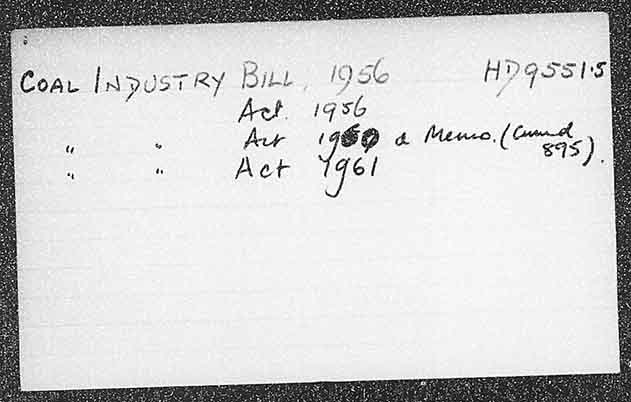 COAL INDUSTRY BILL, 1956 HD9551.5
Act. 1956
" " Act 1960 & Memo. (Cmnd 895).
" " Act 1961